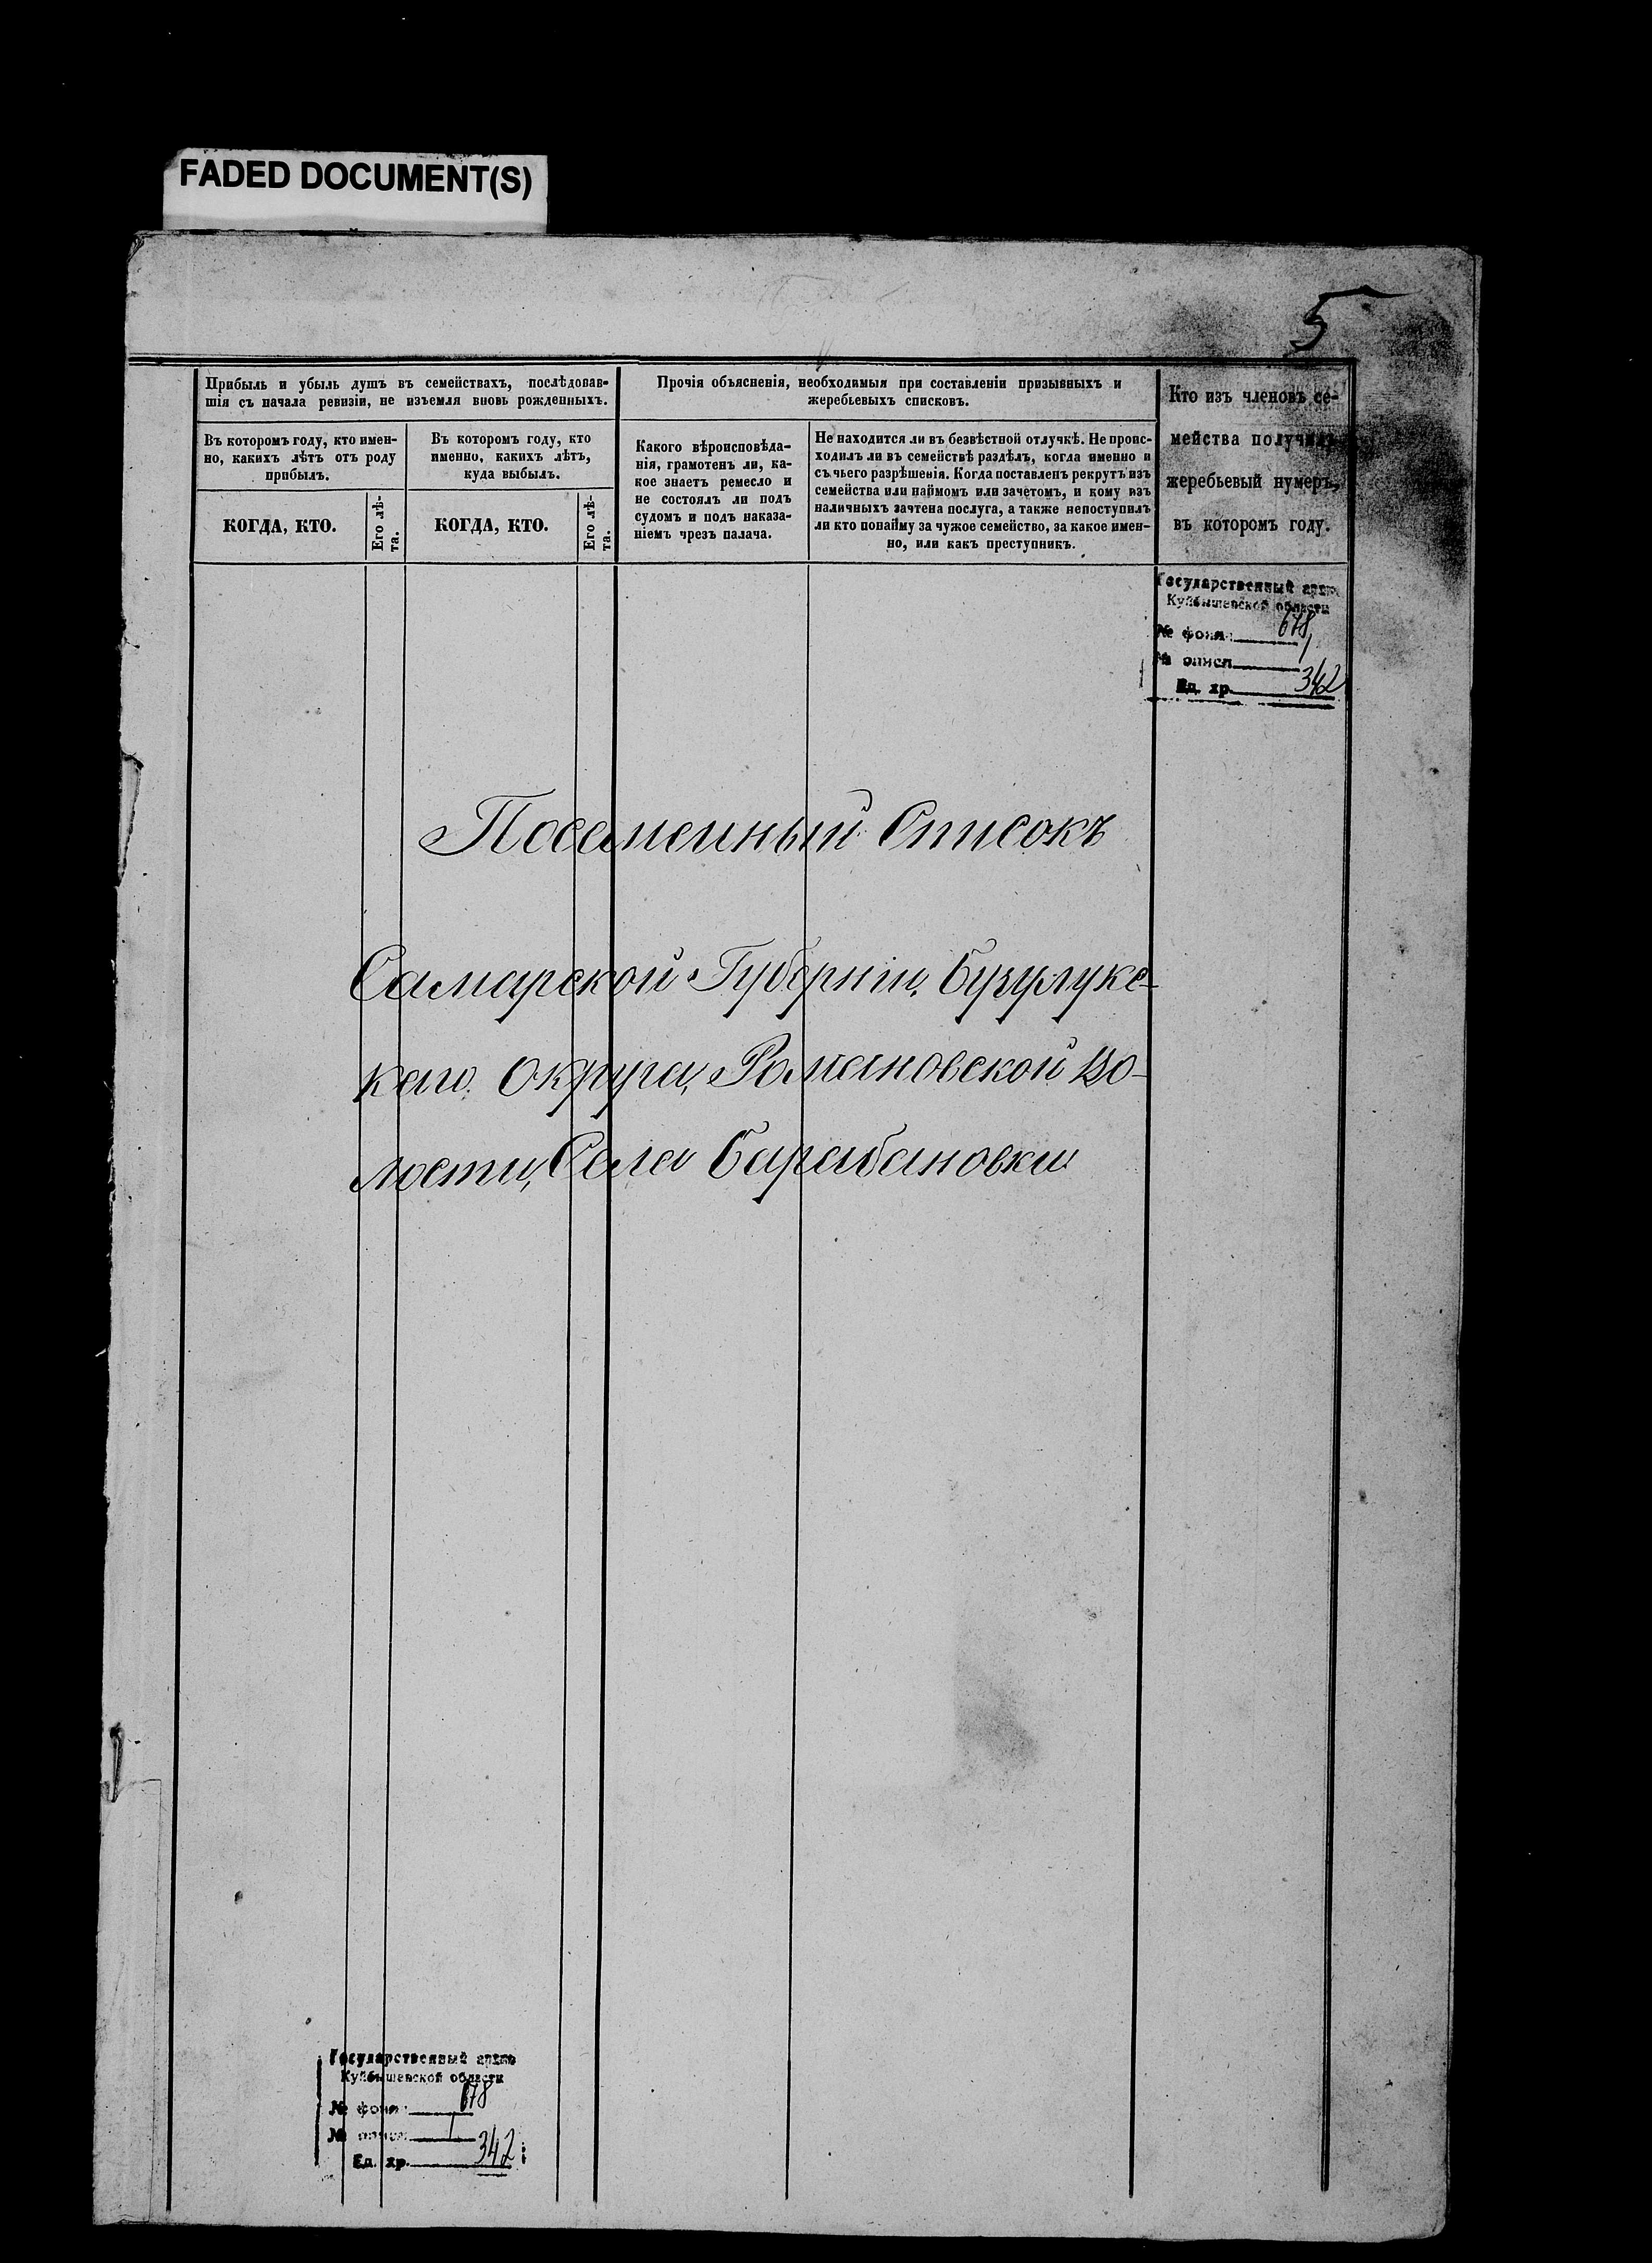 FADED DOCUMENT(S)
5
Прибыль и убыль душъ въ семействахъ, послѣдовав-
шія съ начала ревизіи, не изъемля вновь рожденныхъ.
Въ которомъ году, кто имен-
но, какихъ лѣтъ отъ роду
прибылъ.
КОГДА, КТО.
Его лѣ-
та.
Въ которомъ году, кто
именно, какихъ лѣтъ,
куда выбылъ.
КОГДА, КТО.
Его лѣ-
та.
Прочія объясненія, необходимыя при составленіи призывныхъ и
жеребьевыхъ списковъ.
Какого вѣроисповѣда-
нія, грамотенъ ли, ка-
кое знаетъ ремесло и
не состоялъ ли подъ
судомъ и подъ наказа-
ніемъ чрезъ палача.
Не находится ли въ безвѣстной отлучкѣ. Не проис-
ходилъ ли въ семействѣ раздѣлъ, когда именно и
съ чьего разрѣшенія. Когда поставленъ рекрутъ изъ
семейства или наймомъ или зачетомъ, и кому изъ
наличныхъ зачтена послуга, а также непоступилъ
ли кто понайму за чужое семейство, за какое имен-
но, или какъ преступникъ.
Кто изъ членовъ се-
мейства получилъ
жеребьевый нумеръ,
въ которомъ году.
Государственный архив
Куйбышевской области
№ фонд 678
№ описи 1
Ед. хр. 342
Посемейный Списокъ
Самарской Губерніи, Бузулукс-
каго Округа, Романовской Во-
лости, Села Барабановки
Государственный архив
Куйбышевской области
№ фонд 678
№ описи 1
Ед. хр. 342